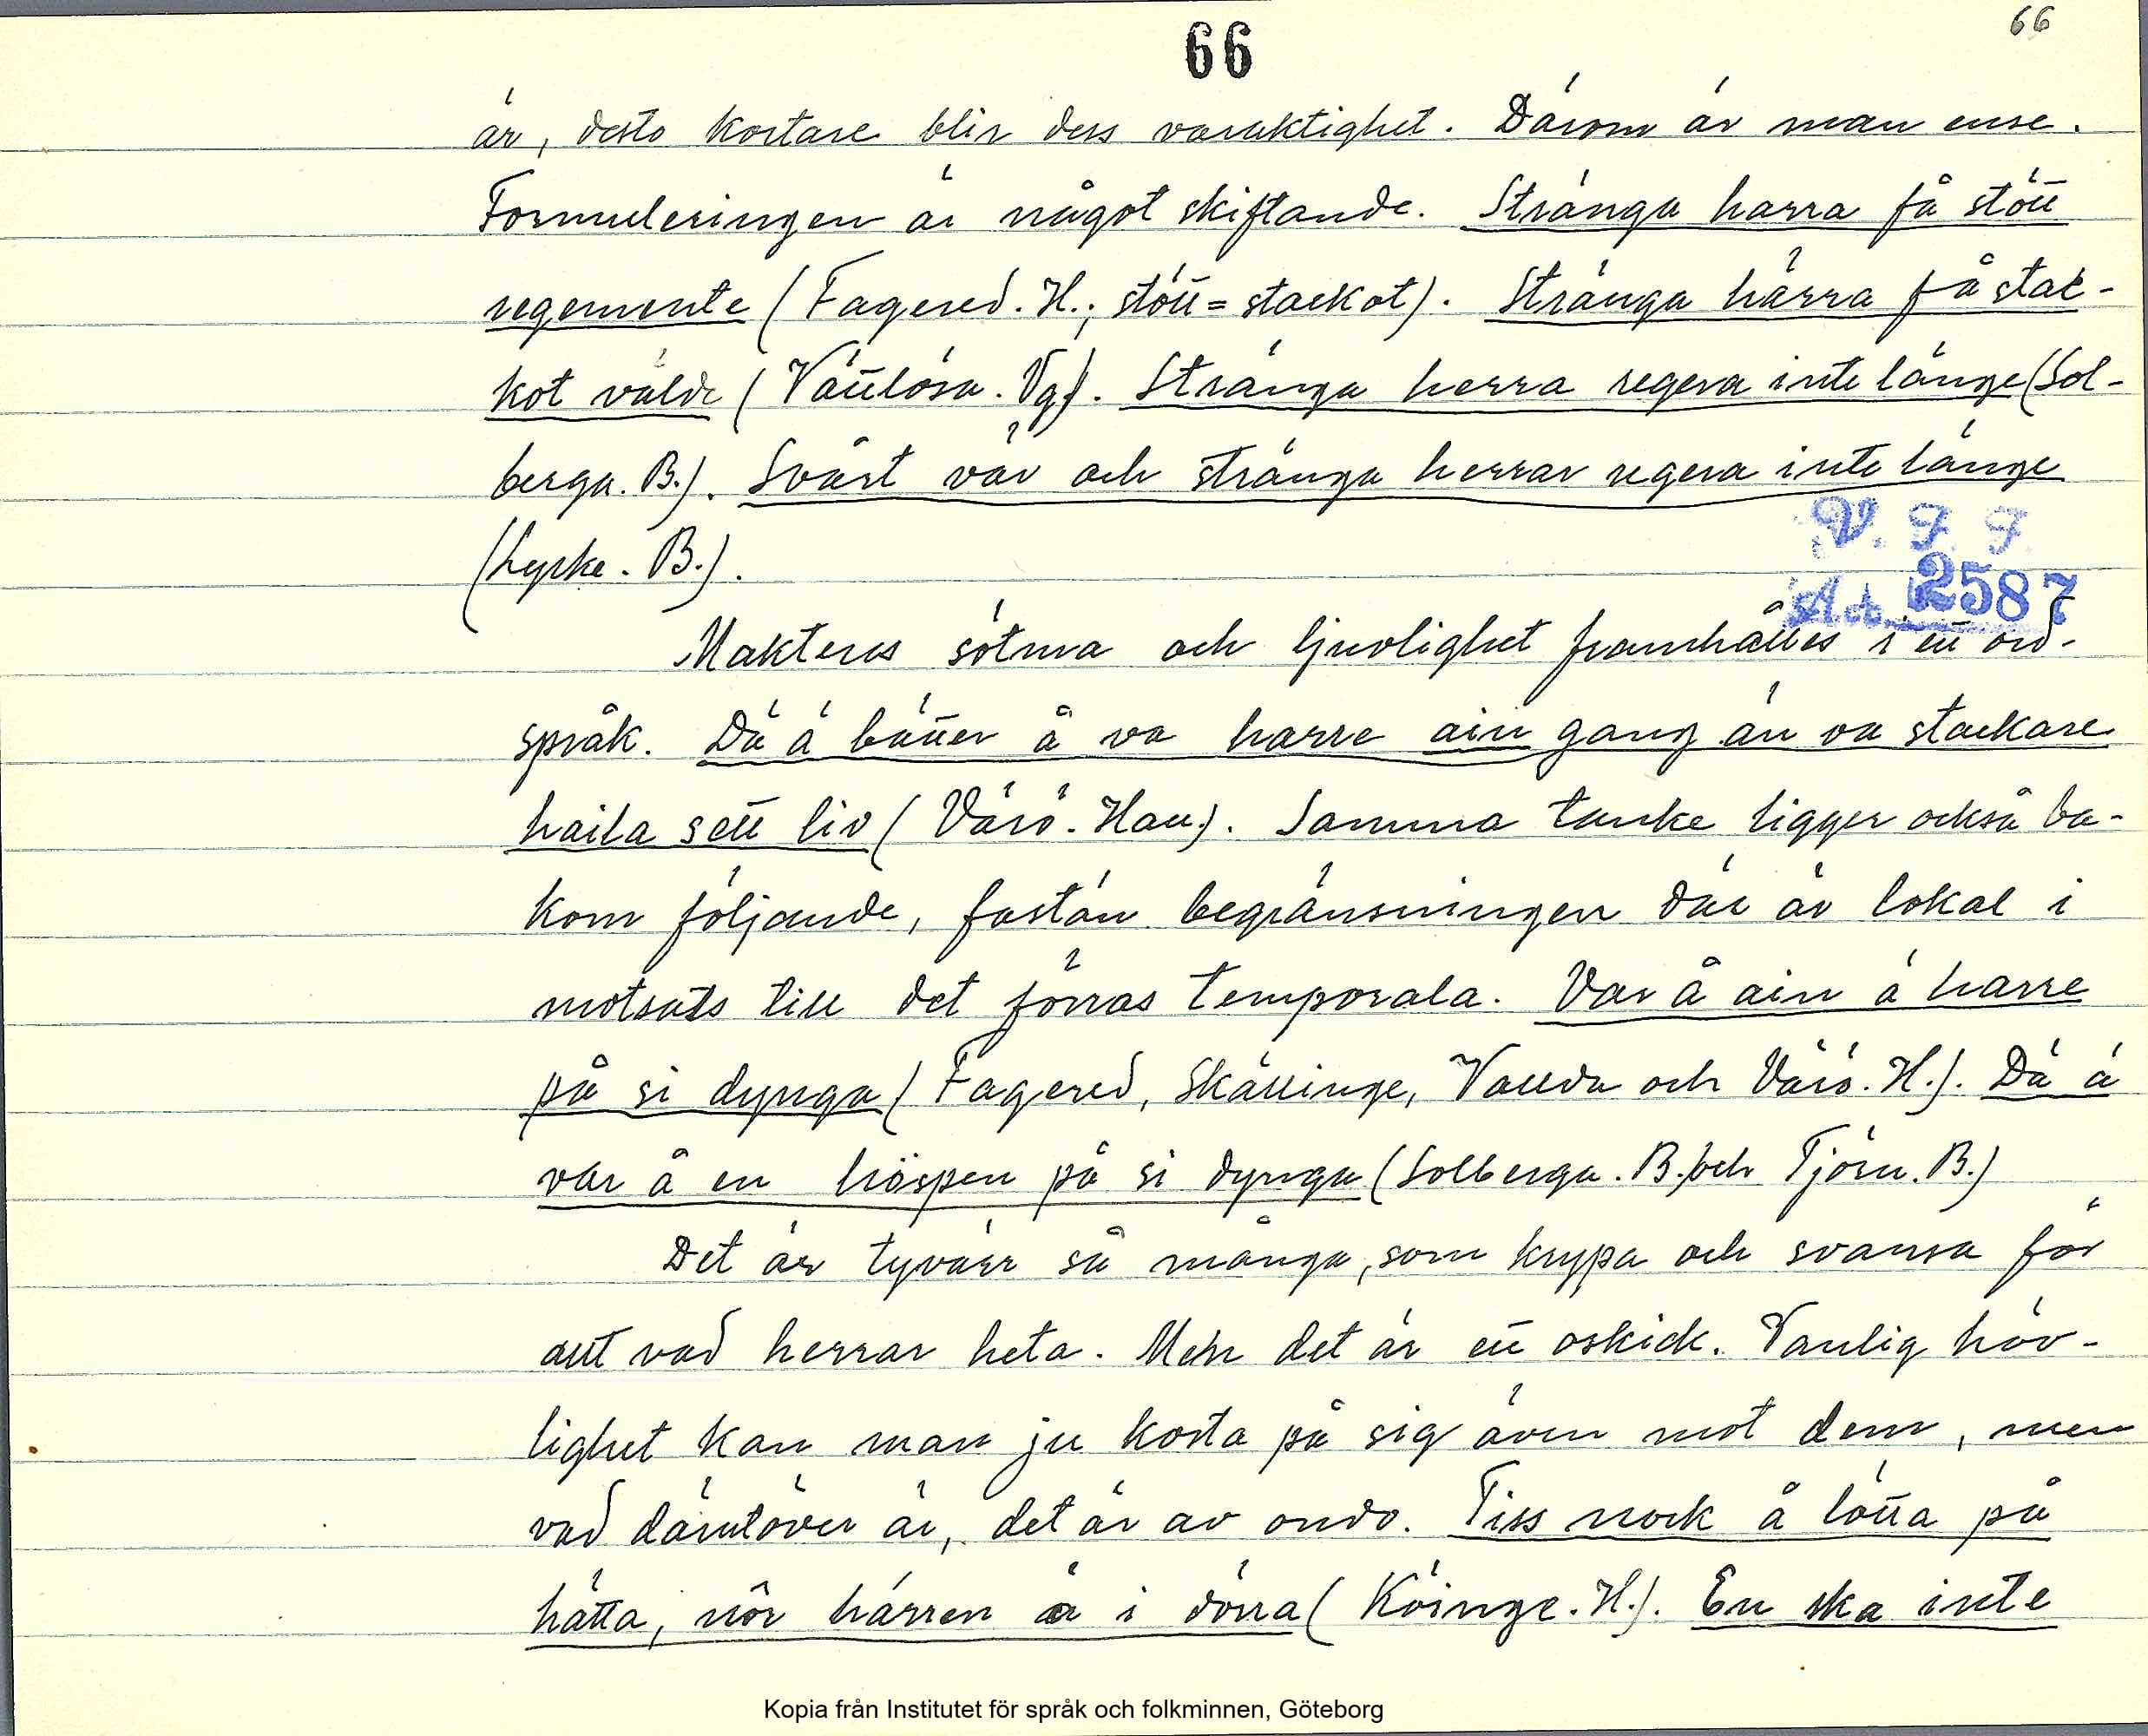 66
66
är, desto kortare blir dess varaktighet. Därom är man ense.
Formuleringen är något skiftande. Stränga harra få stött
regemente (Fagered. H.; stött = stackot). Stränga härra få stac-
kot välde (Vättlösa. Vg). Stränga herra regera inte länge (Sol-
berga. B.). Svårt väv och stränga herrar regera inte länge
(Lycke. B.).
V. F. F.
Acc. 2587
Maktens sötma och ljuvlighet framhålles i ett ord-
språk. Dä ä bätter å va harre ain gang än va stackare
haila sett liv (Värö. Hall.). Samma tanke ligger också ba-
kom följande, fastän begränsningen där är lokal i
motsats till det förras temporala. Var å ain ä harre
på si dynga (Fagered, Skällinge, Valda och Värö. H.). Dä ä
var å en höspen på si dynga (Solberga. B. och Tjörn. B.)
Det är tyvärr så många, som krypa och svansa för
allt vad herrar heta. Men det är ett oskick. Vanlig höv-
lighet kan man ju kosta på sig även mot dem, men
vad därutöver är, det är av ondo. Tiss nock å lötta på
hätta, nör härren ä i dörra (Köinge. H.). En ska inte
Kopia från Institutet för språk och folkminnen, Göteborg